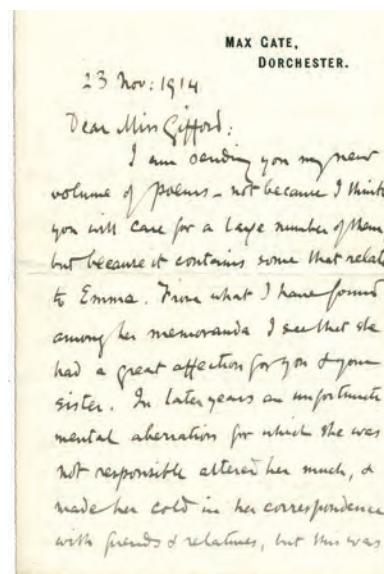 MAX GATE,
DORCHESTER.
23 Nov: 1914
Dear Miss Gifford:
I am sending you my new
volume of poems – not because I think
you will care for a large number of them
but because it contains some that relate
to Emma. From what I have found
among her memoranda I see that she
had a great affection for you & your
sister. In later years an unfortunate
mental aberration for which she was
not responsible altered her much, &
made her cold in her correspondence
with friends & relatives, but this was